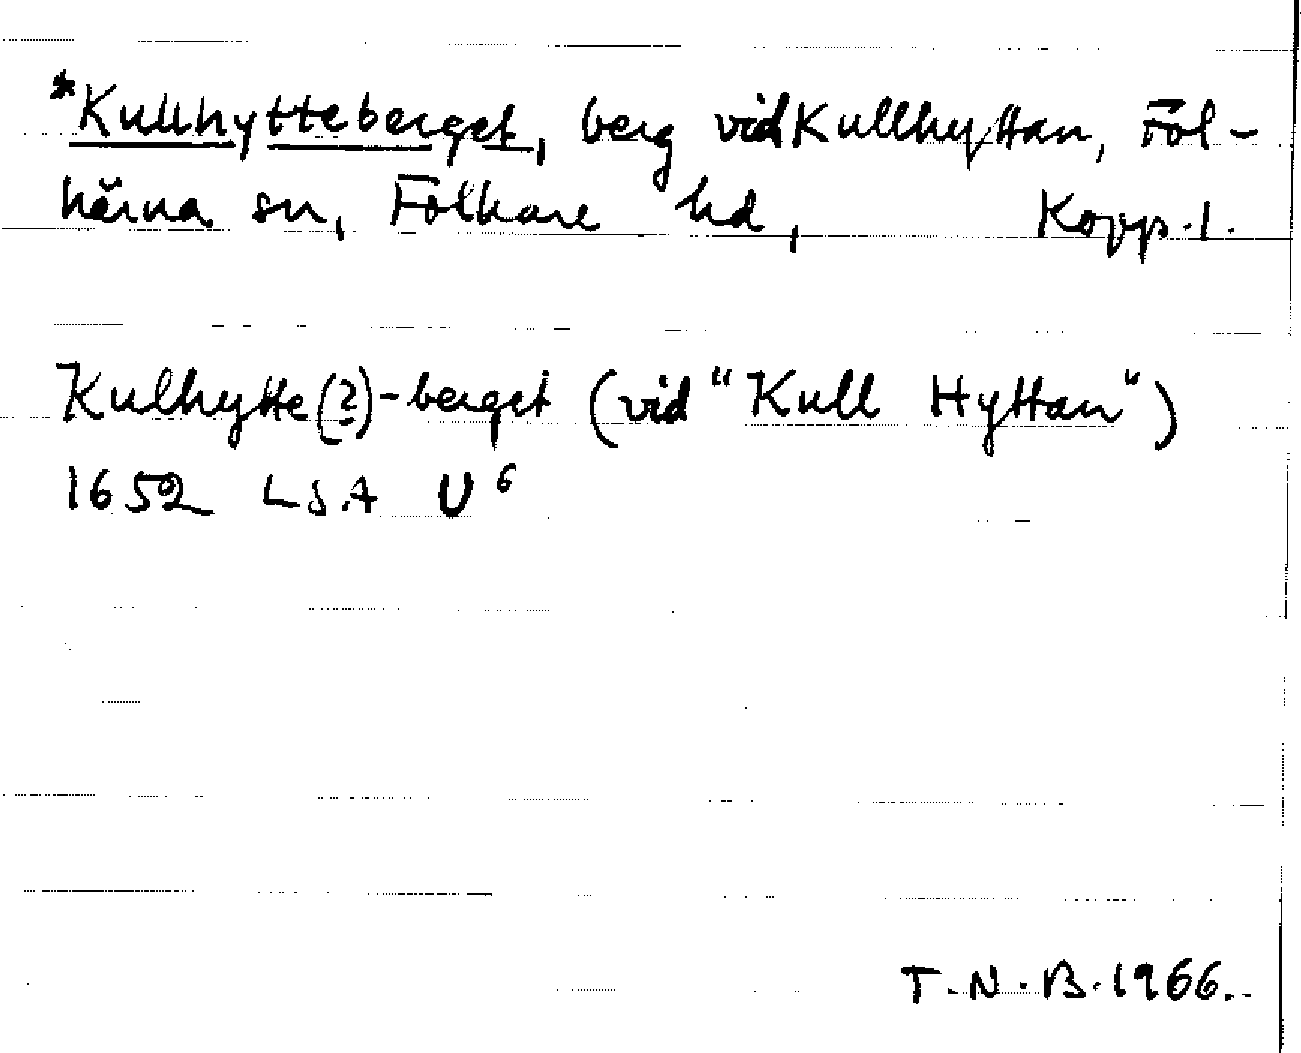 *Kullhytteberget, berg vid Kullhyttan, Fol-
kärna sn, Folkare hd, Kopp.l.
Kulhytte(?)-berget (vid "Kull Hyttan")
1652 LSA U⁶
T.N.B.1966.